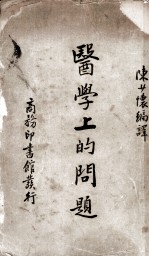 陳世懷編譯
醫學上的問題
商務印書館發行